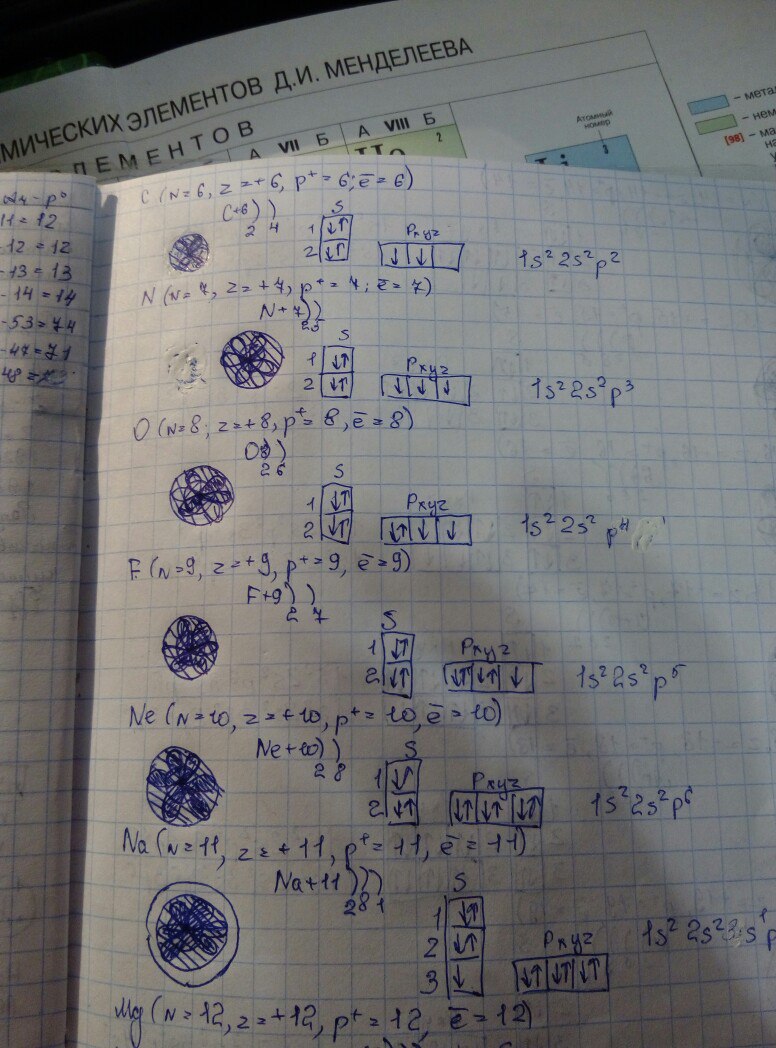 МИЧЕСКИХ ЭЛЕМЕНТОВ Д.И. МЕНДЕЛЕЕВА
ЛЕМЕНТОВ
А VII Б
А VIII Б
2
Атомный
номер
3
Li
– метал
– нем
[98] – ма
11 = 12
- 12 = 12
- 13 = 13
- 14 = 14
- 53 = 74
- 47 = 71
C (N=6, z=+6, p⁺=6; ē=6)
C+6) )
2 4
S
1 ↓↑
2 ↓↑
Pxyz
↓ ↓
1s² 2s² p²
N (N=7, z=+7, p⁺=7; ē=7)
N+7))
25
S
1 ↓↑
2 ↓↑
Pxyz
↓ ↓ ↓
1s² 2s² p³
O (N=8; z=+8, p⁺=8, ē=8)
2 6
S
1 ↓↑
2 ↓↑
Pxyz
↓↑ ↓ ↓
1s² 2s² p⁴
F (N=9, z=+9, p⁺=9, ē=9)
F+9) )
2 7
S
1 ↓↑
2 ↓↑
Pxyz
↓↑ ↓↑ ↓
1s² 2s² p⁵
Ne (N=10, z=+10, p⁺=10, ē=10)
Ne+10) )
2 8
S
1 ↓↑
2 ↓↑
Pxyz
↓↑ ↓↑ ↓↑
1s² 2s² p⁶
Na (N=11, z=+11, p⁺=11, ē=11)
Na+11 )))
2 8 1
S
1 ↓↑
2 ↓↑
3 ↓
Pxyz
↓↑ ↓↑ ↓↑
1s² 2s² 3s¹ p
Mg (N=12, z=+12, p⁺=12, ē=12)